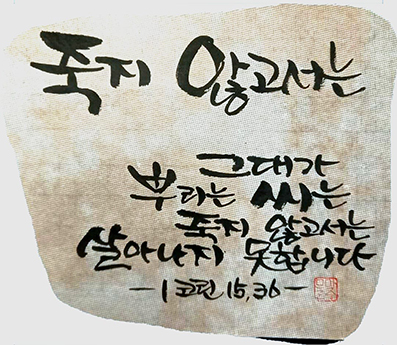 죽지 않고서는
그대가
뿌리는 씨는
죽지 않고서는
살아나지 못합니다
-1 코린 15,36-